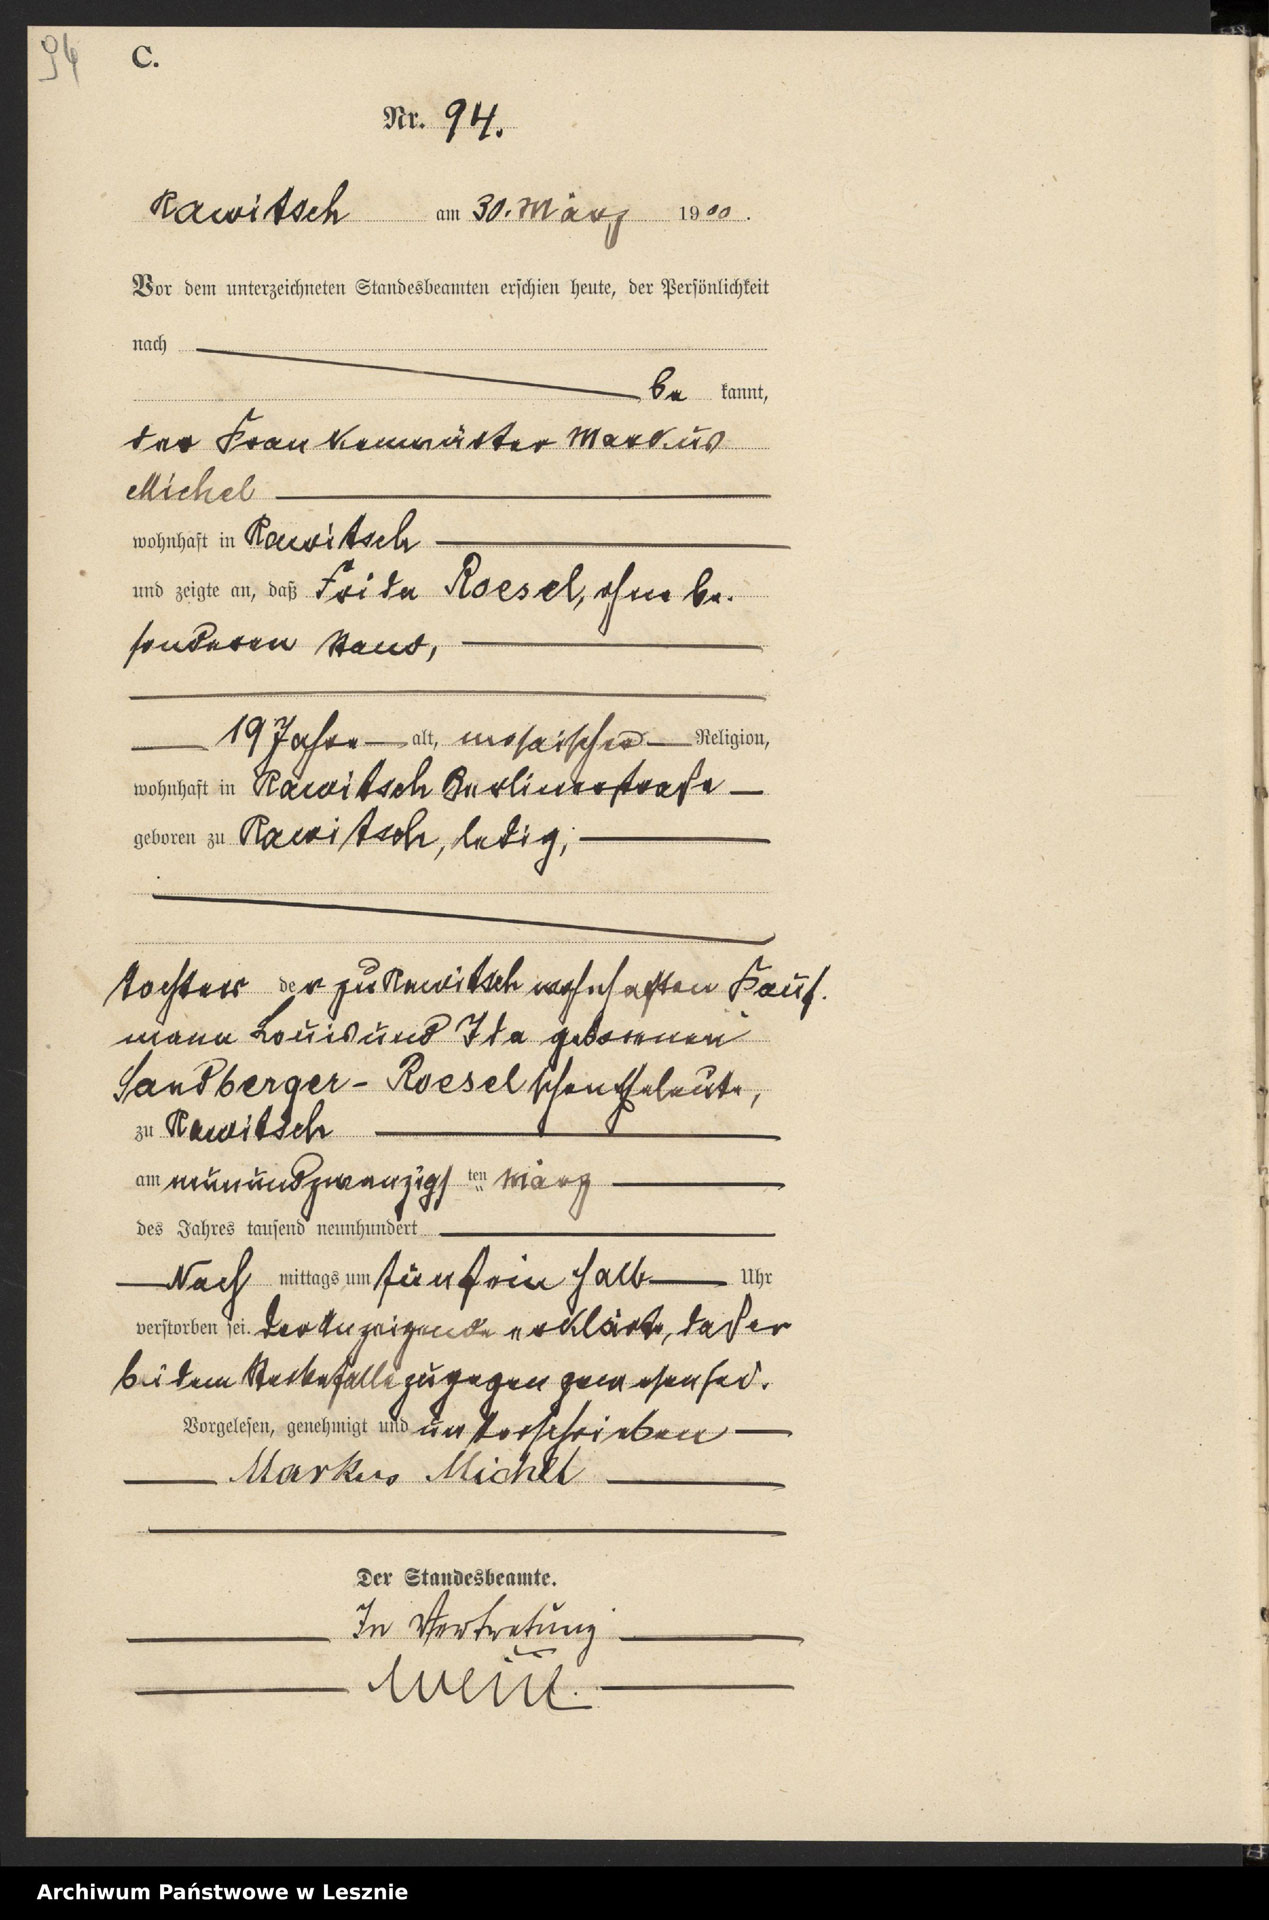 94
C.
Nr. 94.
Rawitsch am 30. März 1900.
Vor dem unterzeichneten Standesbeamten erschien heute, der Persönlichkeit
nach
be kannt,
der Krankenwärter Markus
Michel
wohnhaft in Rawitsch
und zeigte an, daß Frida Roesel, ohne be-
sonderen Stand,
19 Jahre alt, mosaischer Religion,
wohnhaft in Rawitsch Berlinerstraße
geboren zu Rawitsch, ledig,
Tochter der zu Rawitsch wohnhaften Kauf-
mann Louis und Ida geborenen
Sandberger-Roesel'schen Eheleute,
zu Rawitsch
am neunundzwanzigsten März
des Jahres tausend neunhundert
Nach mittags um fünfeinhalb Uhr
verstorben sei. Der Anzeigende erklärte, daß er
bei dem Sterbefalle zugegen gewesen sei.
Vorgelesen, genehmigt und unterschrieben
Markus Michel
Der Standesbeamte.
In Vertretung
Archiwum Państwowe w Lesznie